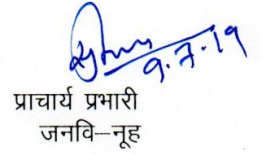 9.7.19
प्राचार्य प्रभारी
जनवि–नूह